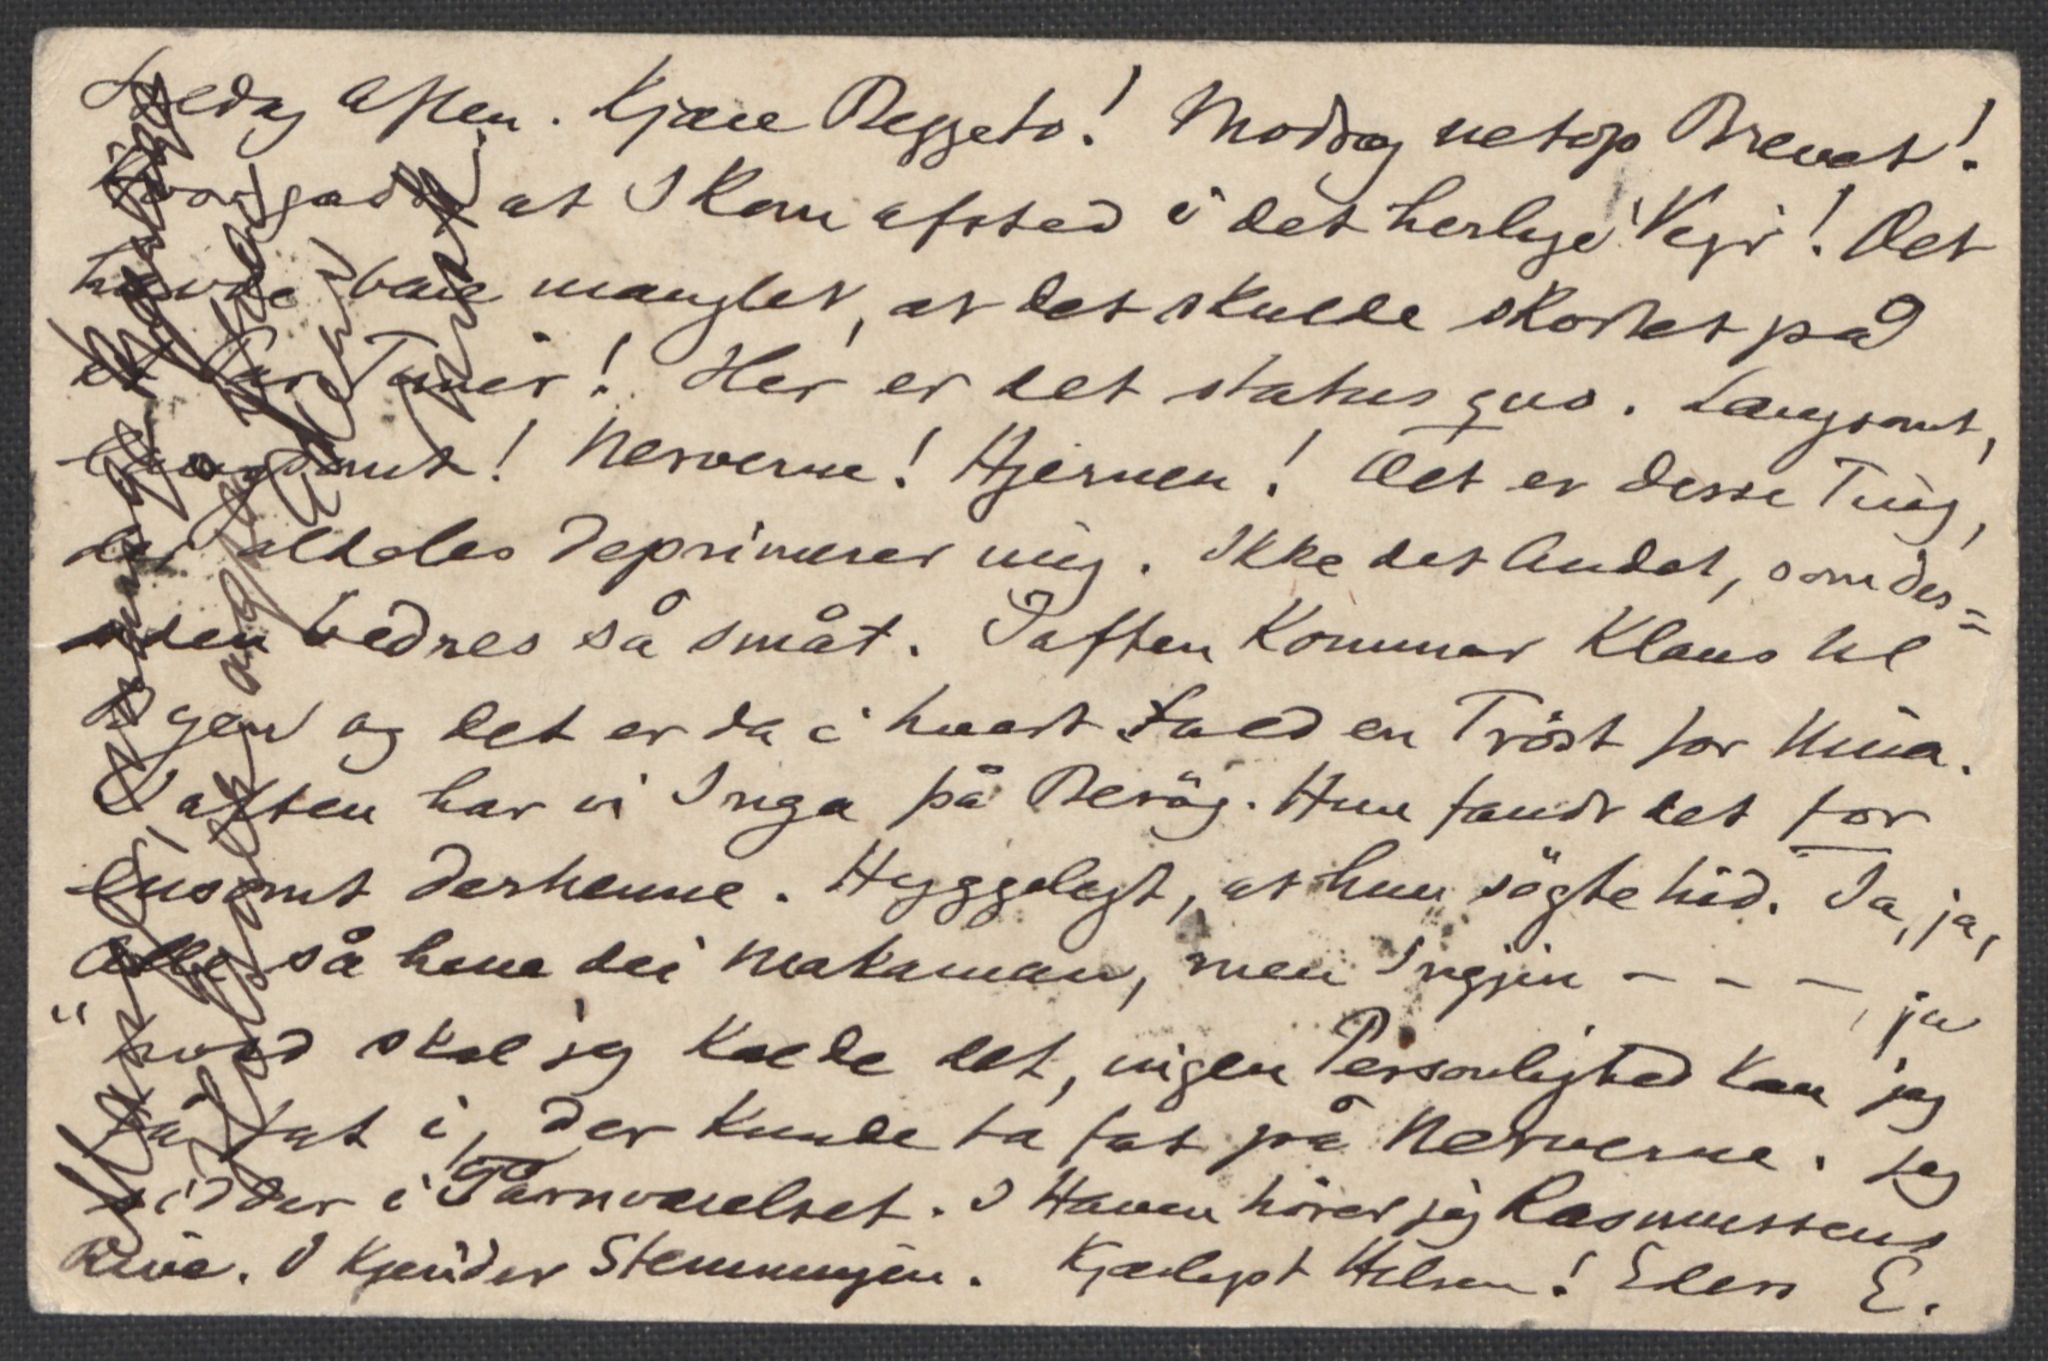 Fredag Aften. Kjære Begge to! Modtog netop Brevet!
Hvor godt at I kom afsted i det herlige Vejr! Det
havde bare manglet, at det skulde skortet på
et Par Timer! Her er det status quo. Langsomt,
langsomt! Nerverne! Hjernen! Det er disse Ting,
der aldeles deprimerer mig. Ikke det Andet, som des=
uden bedres så småt. Iaften kommer Klaus til
Bergen og det er da i hvert Fald en Tröst for Nina.
Iaften har vi Inga på Besög. Hun fandt det for
ensomt derhenne. Hyggeligt, at hun sögte hid. Ja, ja,
"Alle så hava dei Makaman, men Ingjin – – –, ja
hvad skal jeg kalde det, ingen Personlighed kan jeg
få fat i, der kunde ta fat på Nerverne. Jeg
sidder i Tårnværelset. I Haven hörer jeg Rasmussens
Rive. I kjender Stemningen. Kjærligst Hilsen! Eders E.